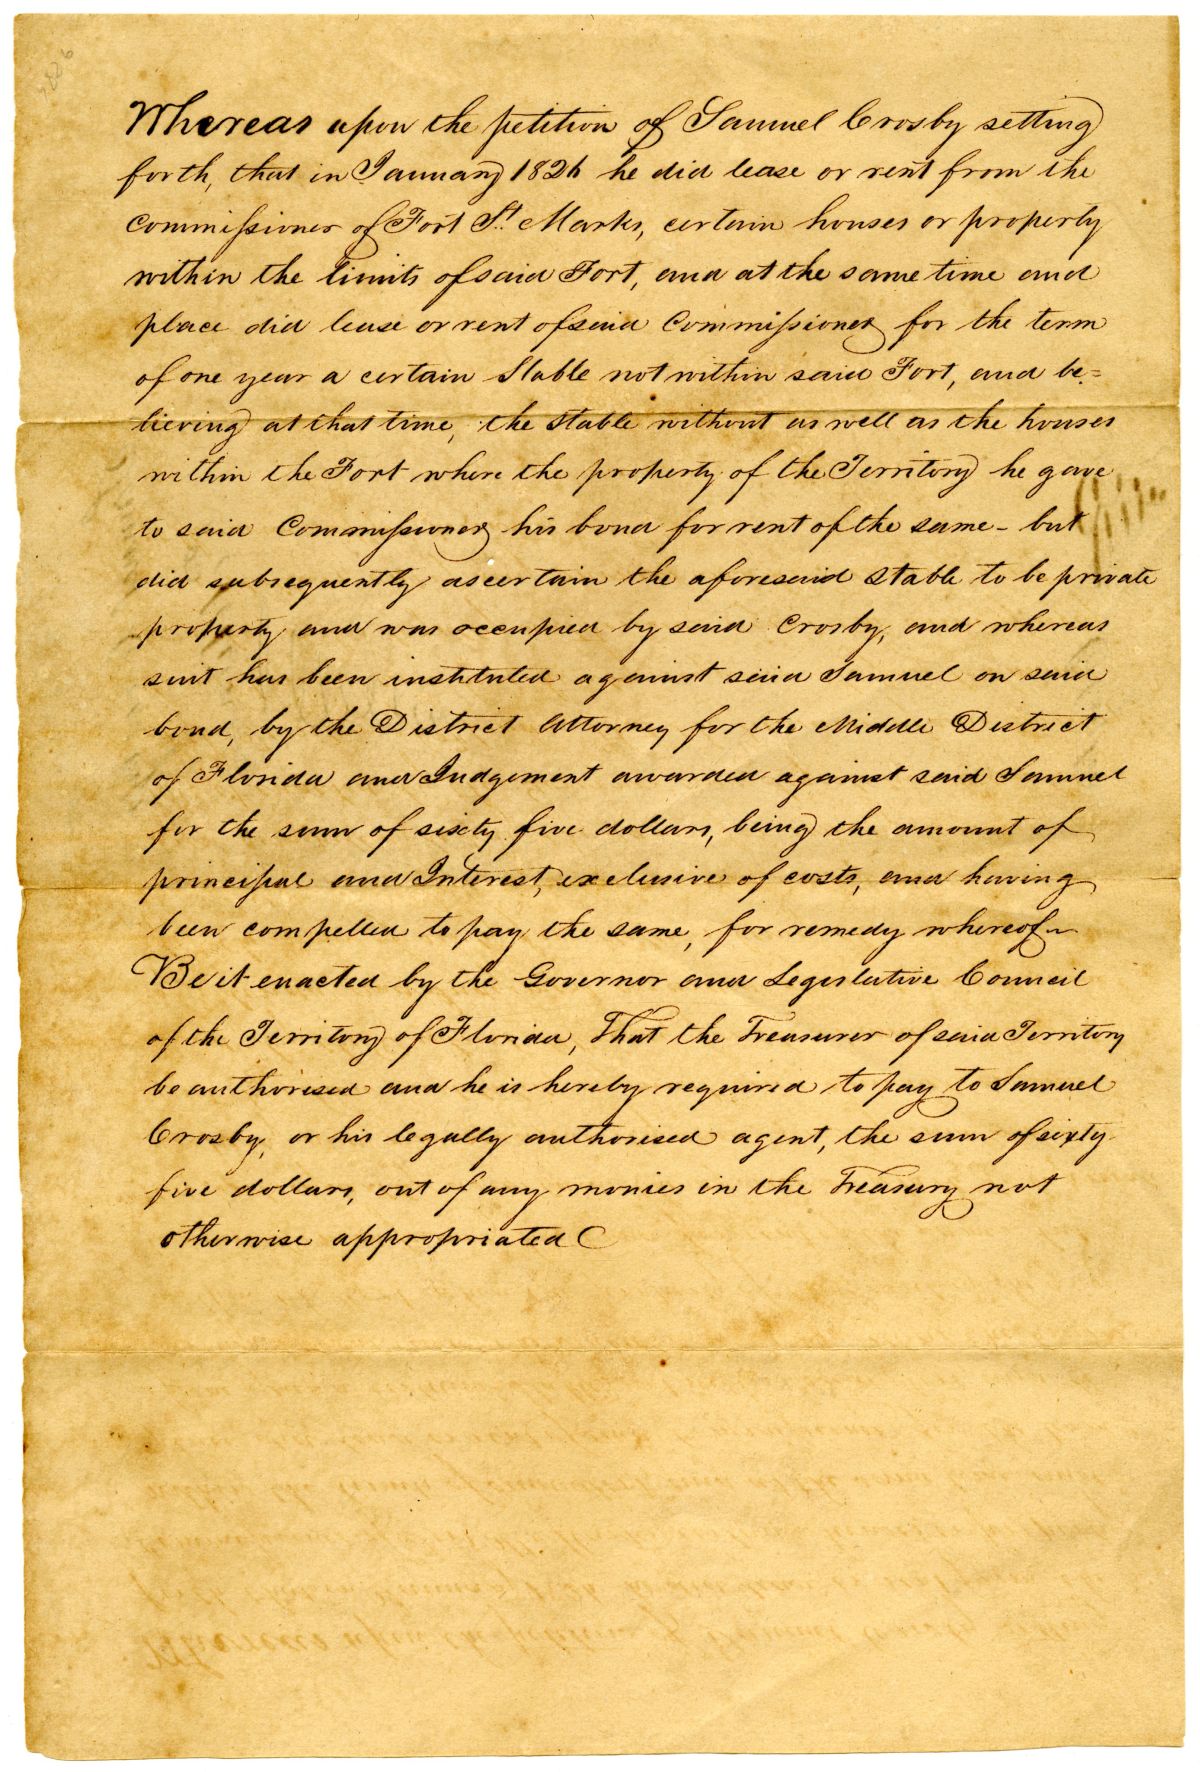 1826
Whereas upon the petition of Samuel Crosby setting
forth, that in January 1826 he did lease or rent from the
Commissioner of Fort St. Marks, certain houses or property
within the limits of said Fort, and at the same time and
place did lease or rent of said Commissioner for the term
of one year a certain Stable not within said Fort, and be=
lieving at that time, the Stable without as well as the houses
within the Fort where the property of the Territory he gave
to said Commissioner his bond for rent of the same - but
did subsequently ascertain the aforesaid Stable to be private
property and was occupied by said Crosby, and whereas
suit has been instituted against said Samuel on said
bond, by the District Attorney for the Middle District
of Florida and Judgement awarded against said Samuel
for the sum of sixty five dollars, being the amount of
principal and Interest, exclusive of costs, and having
been compelled to pay the same, for remedy whereof
Be it enacted by the Governor and Legislative Council
of the Territory of Florida, That the Treasurer of said Territory
be authorised and he is hereby required to pay to Samuel
Crosby, or his legally authorised agent, the sum of sixty
five dollars, out of any monies in the Treasury not
otherwise appropriated